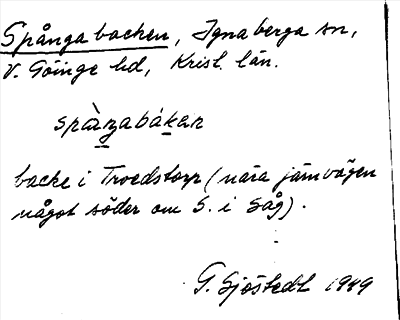 Spångabacken, Ignaberga sn,
V. Göinge hd, Krist. län.
spàŋabákan
backe i Troedstorp (nära järnvägen
något söder om S. i Såg).
G. Sjöstedt 1949